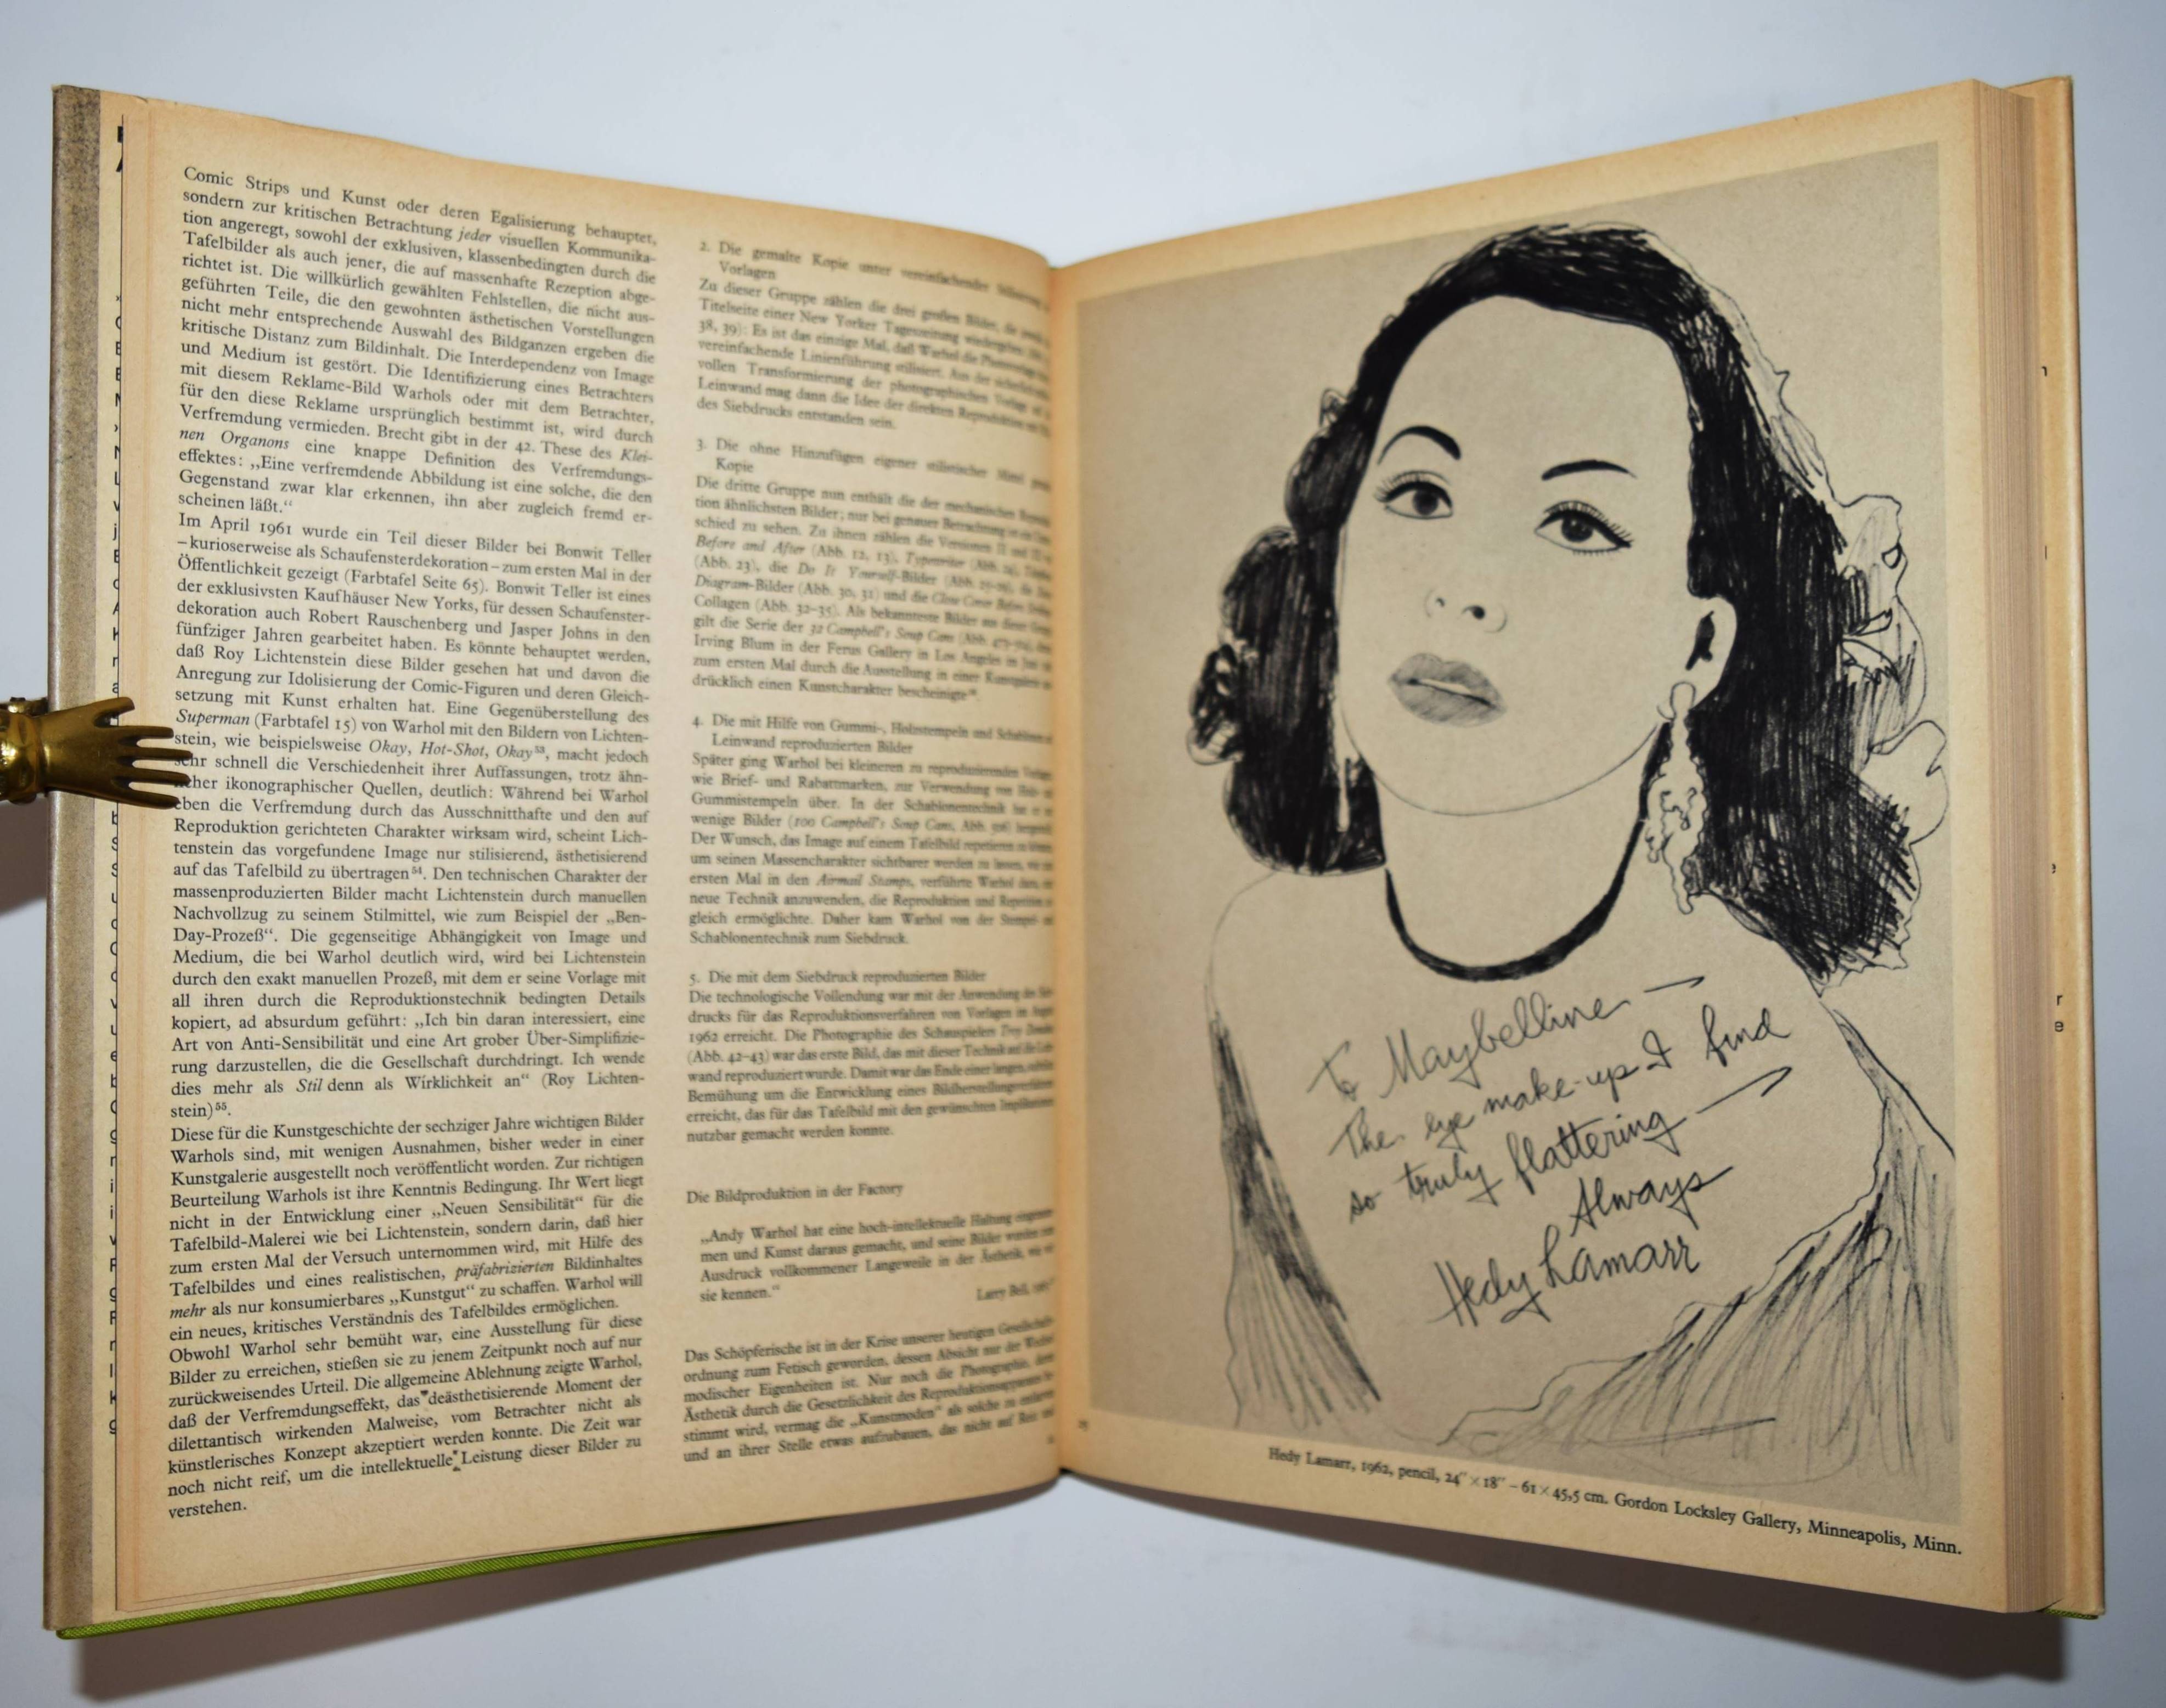 Comic Strips und Kunst oder deren Egalisierung behauptet,
sondern zur kritischen Betrachtung jeder visuellen Kommunika-
tion angeregt, sowohl der exklusiven, klassenbedingten durch die
Tafelbilder als auch jener, die auf massenhafte Rezeption abge-
richtet ist. Die willkürlich gewählten Fehlstellen, die nicht aus-
geführten Teile, die den gewohnten ästhetischen Vorstellungen
nicht mehr entsprechende Auswahl des Bildganzen ergeben die
kritische Distanz zum Bildinhalt. Die Interdependenz von Image
und Medium ist gestört. Die Identifizierung eines Betrachters
mit diesem Reklame-Bild Warhols oder mit dem Betrachter,
für den diese Reklame ursprünglich bestimmt ist, wird durch
Verfremdung vermieden. Brecht gibt in der 42. These des Klei-
nen Organons eine knappe Definition des Verfremdungs-
effektes: „Eine verfremdende Abbildung ist eine solche, die den
Gegenstand zwar klar erkennen, ihn aber zugleich fremd er-
scheinen läßt.“
Im April 1961 wurde ein Teil dieser Bilder bei Bonwit Teller
–kurioserweise als Schaufensterdekoration–zum ersten Mal in der
Öffentlichkeit gezeigt (Farbtafel Seite 65). Bonwit Teller ist eines
der exklusivsten Kaufhäuser New Yorks, für dessen Schaufenster-
dekoration auch Robert Rauschenberg und Jasper Johns in den
fünfziger Jahren gearbeitet haben. Es könnte behauptet werden,
daß Roy Lichtenstein diese Bilder gesehen hat und davon die
Anregung zur Idolisierung der Comic-Figuren und deren Gleich-
setzung mit Kunst erhalten hat. Eine Gegenüberstellung des
Superman (Farbtafel 15) von Warhol mit den Bildern von Lichten-
stein, wie beispielsweise Okay, Hot-Shot, Okay⁵³, macht jedoch
sehr schnell die Verschiedenheit ihrer Auffassungen, trotz ähn-
licher ikonographischer Quellen, deutlich: Während bei Warhol
eben die Verfremdung durch das Ausschnitthafte und den auf
Reproduktion gerichteten Charakter wirksam wird, scheint Lich-
tenstein das vorgefundene Image nur stilisierend, ästhetisierend
auf das Tafelbild zu übertragen⁵⁴. Den technischen Charakter der
massenproduzierten Bilder macht Lichtenstein durch manuellen
Nachvollzug zu seinem Stilmittel, wie zum Beispiel der „Ben-
Day-Prozeß“. Die gegenseitige Abhängigkeit von Image und
Medium, die bei Warhol deutlich wird, wird bei Lichtenstein
durch den exakt manuellen Prozeß, mit dem er seine Vorlage mit
all ihren durch die Reproduktionstechnik bedingten Details
kopiert, ad absurdum geführt: „Ich bin daran interessiert, eine
Art von Anti-Sensibilität und eine Art grober Über-Simplifizie-
rung darzustellen, die die Gesellschaft durchdringt. Ich wende
dies mehr als Stil denn als Wirklichkeit an“ (Roy Lichten-
stein)⁵⁵.
Diese für die Kunstgeschichte der sechziger Jahre wichtigen Bilder
Warhols sind, mit wenigen Ausnahmen, bisher weder in einer
Kunstgalerie ausgestellt noch veröffentlicht worden. Zur richtigen
Beurteilung Warhols ist ihre Kenntnis Bedingung. Ihr Wert liegt
nicht in der Entwicklung einer „Neuen Sensibilität“ für die
Tafelbild-Malerei wie bei Lichtenstein, sondern darin, daß hier
zum ersten Mal der Versuch unternommen wird, mit Hilfe des
Tafelbildes und eines realistischen, präfabrizierten Bildinhaltes
mehr als nur konsumierbares „Kunstgut“ zu schaffen. Warhol will
ein neues, kritisches Verständnis des Tafelbildes ermöglichen.
Obwohl Warhol sehr bemüht war, eine Ausstellung für diese
Bilder zu erreichen, stießen sie zu jenem Zeitpunkt noch auf nur
zurückweisendes Urteil. Die allgemeine Ablehnung zeigte Warhol,
daß der Verfremdungseffekt, das deästhetisierende Moment der
dilettantisch wirkenden Malweise, vom Betrachter nicht als
künstlerisches Konzept akzeptiert werden konnte. Die Zeit war
noch nicht reif, um die intellektuelle Leistung dieser Bilder zu
verstehen.
2. Die gemalte Kopie unter vereinfachender Stilisierung
Vorlagen
Zu dieser Gruppe zählen die drei großen Bilder, die
Titelseite einer New Yorker Tageszeitung wiedergeben
38, 39): Es ist das einzige Mal, daß Warhol die
vereinfachende Linienführung stilisiert. Aus der
vollen Transformierung der photographischen Vorlage
Leinwand mag dann die Idee der direkten Reproduktion
des Siebdrucks entstanden sein.
3. Die ohne Hinzufügen eigener stilistischer Mittel
Kopie
Die dritte Gruppe nun enthält die der mechanischen
tion ähnlichsten Bilder; nur bei genauer Betrachtung ist ein
schied zu sehen. Zu ihnen zählen die Versionen II und III
Before and After (Abb. 12, 13), Typewriter
(Abb. 23), die Do It Yourself-Bilder
Diagram-Bilder (Abb. 30, 31) und die Close Cover Before
Collagen (Abb. 32–35). Als bekannteste Bilder aus dieser
gilt die Serie der 32 Campbell's Soup Cans
Irving Blum in der Ferus Gallery in Los Angeles im
zum ersten Mal durch die Ausstellung in einer
drücklich einen Kunstcharakter bescheinigte
4. Die mit Hilfe von Gummi-, Holzstempeln und Schablonen
Leinwand reproduzierten Bilder
Später ging Warhol bei kleineren zu reproduzierenden
wie Brief- und Rabattmarken, zur Verwendung von
Gummistempeln über. In der Schablonentechnik hat er
wenige Bilder (100 Campbell's Soup Cans,
Der Wunsch, das Image auf einem Tafelbild repetieren zu
um seinen Massencharakter sichtbarer werden zu lassen,
ersten Mal in den Airmail Stamps, verführte Warhol dazu,
neue Technik anzuwenden, die Reproduktion und Repetition
gleich ermöglichte. Daher kam Warhol von der Stempel-
Schablonentechnik zum Siebdruck.
5. Die mit dem Siebdruck reproduzierten Bilder
Die technologische Vollendung war mit der Anwendung des
drucks für das Reproduktionsverfahren von Vorlagen im
1962 erreicht. Die Photographie des Schauspielers Troy
(Abb. 42–43) war das erste Bild, das mit dieser Technik auf die
wand reproduziert wurde. Damit war das Ende einer langen,
Bemühung um die Entwicklung eines
erreicht, das für das Tafelbild mit den gewünschten
nutzbar gemacht werden konnte.
Die Bildproduktion in der Factory
„Andy Warhol hat eine hoch-intellektuelle Haltung
men und Kunst daraus gemacht, und seine Bilder wurden
Ausdruck vollkommener Langeweile in der Ästhetik, wie
sie kennen.“
Larry Bell,
Das Schöpferische ist in der Krise unserer heutigen
ordnung zum Fetisch geworden, dessen Absicht nur der Wechsel
modischer Eigenheiten ist. Nur noch die Photographie, deren
Ästhetik durch die Gesetzlichkeit des Reproduktionsapparates
stimmt wird, vermag die „Kunstmoden“ als solche zu
und an ihrer Stelle etwas aufzubauen, das nicht auf
To Maybelline —
The eye make-up I find
so truly flattering —
Always
Hedy Lamarr
Hedy Lamarr, 1962, pencil, 24″ × 18″ – 61 × 45,5 cm. Gordon Locksley Gallery, Minneapolis, Minn.